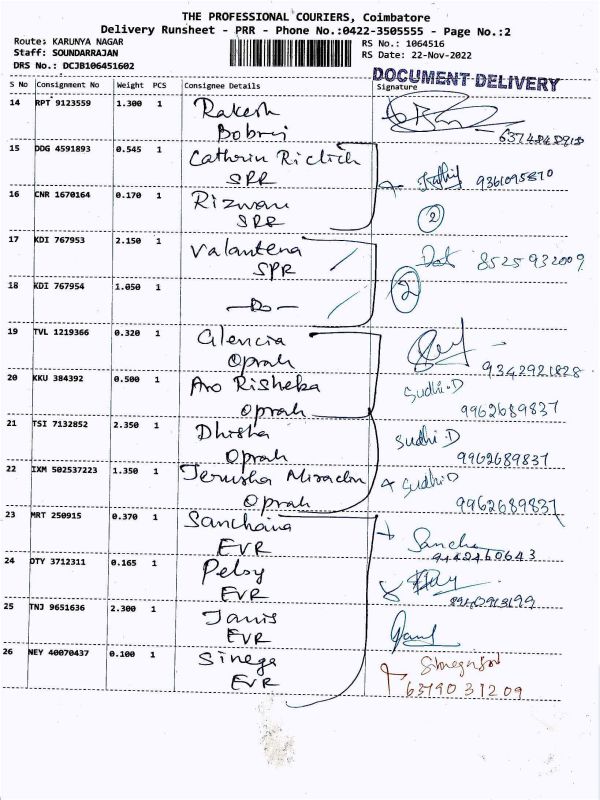 THE PROFESSIONAL COURIERS, Coimbatore
Delivery Runsheet - PRR - Phone No.:0422-3505555 - Page No.:2
Route: KARUNYA NAGAR
RS No.: 1064516
Staff: SOUNDARRAJAN
RS Date: 22-Nov-2022
DRS No.: DCJB106451602
DOCUMENT DELIVERY
S No Consignment No Weight PCS Consignee Details Signature
14 RPT 9123559 1.300 1 Rakesh
Bobrij
15 DDG 4591893 0.545 1 Cathrin Riclich 9361095870
SPR
16 CNR 1670164 0.170 1 Rizwan
SPR 2
17 KDI 767953 2.150 1 Valantena 8525932009
SPR
18 KDI 767954 1.050 1 -Do- 2
19 TVL 1219366 0.320 1 Glencia
Oprah 9342921828
20 KKU 384392 0.500 1 Aro Risheka Sudhi.D
Oprah 9962689837
21 TSI 7132852 2.350 1 Dhisha Sudhi.D
Oprah 9962689837
22 IXM 502537223 1.350 1 Jerusha Miraclin Sudhi D
Oprah 9962689837
23 MRT 250915 0.370 1 Sanchana Sancha
EVR 9442460643
24 OTY 3712311 0.165 1 Pelsy
EVR
25 TNJ 9651636 2.300 1 Janis
EVR
26 NEY 40070437 0.100 1 Sinega
EVR 6379031209